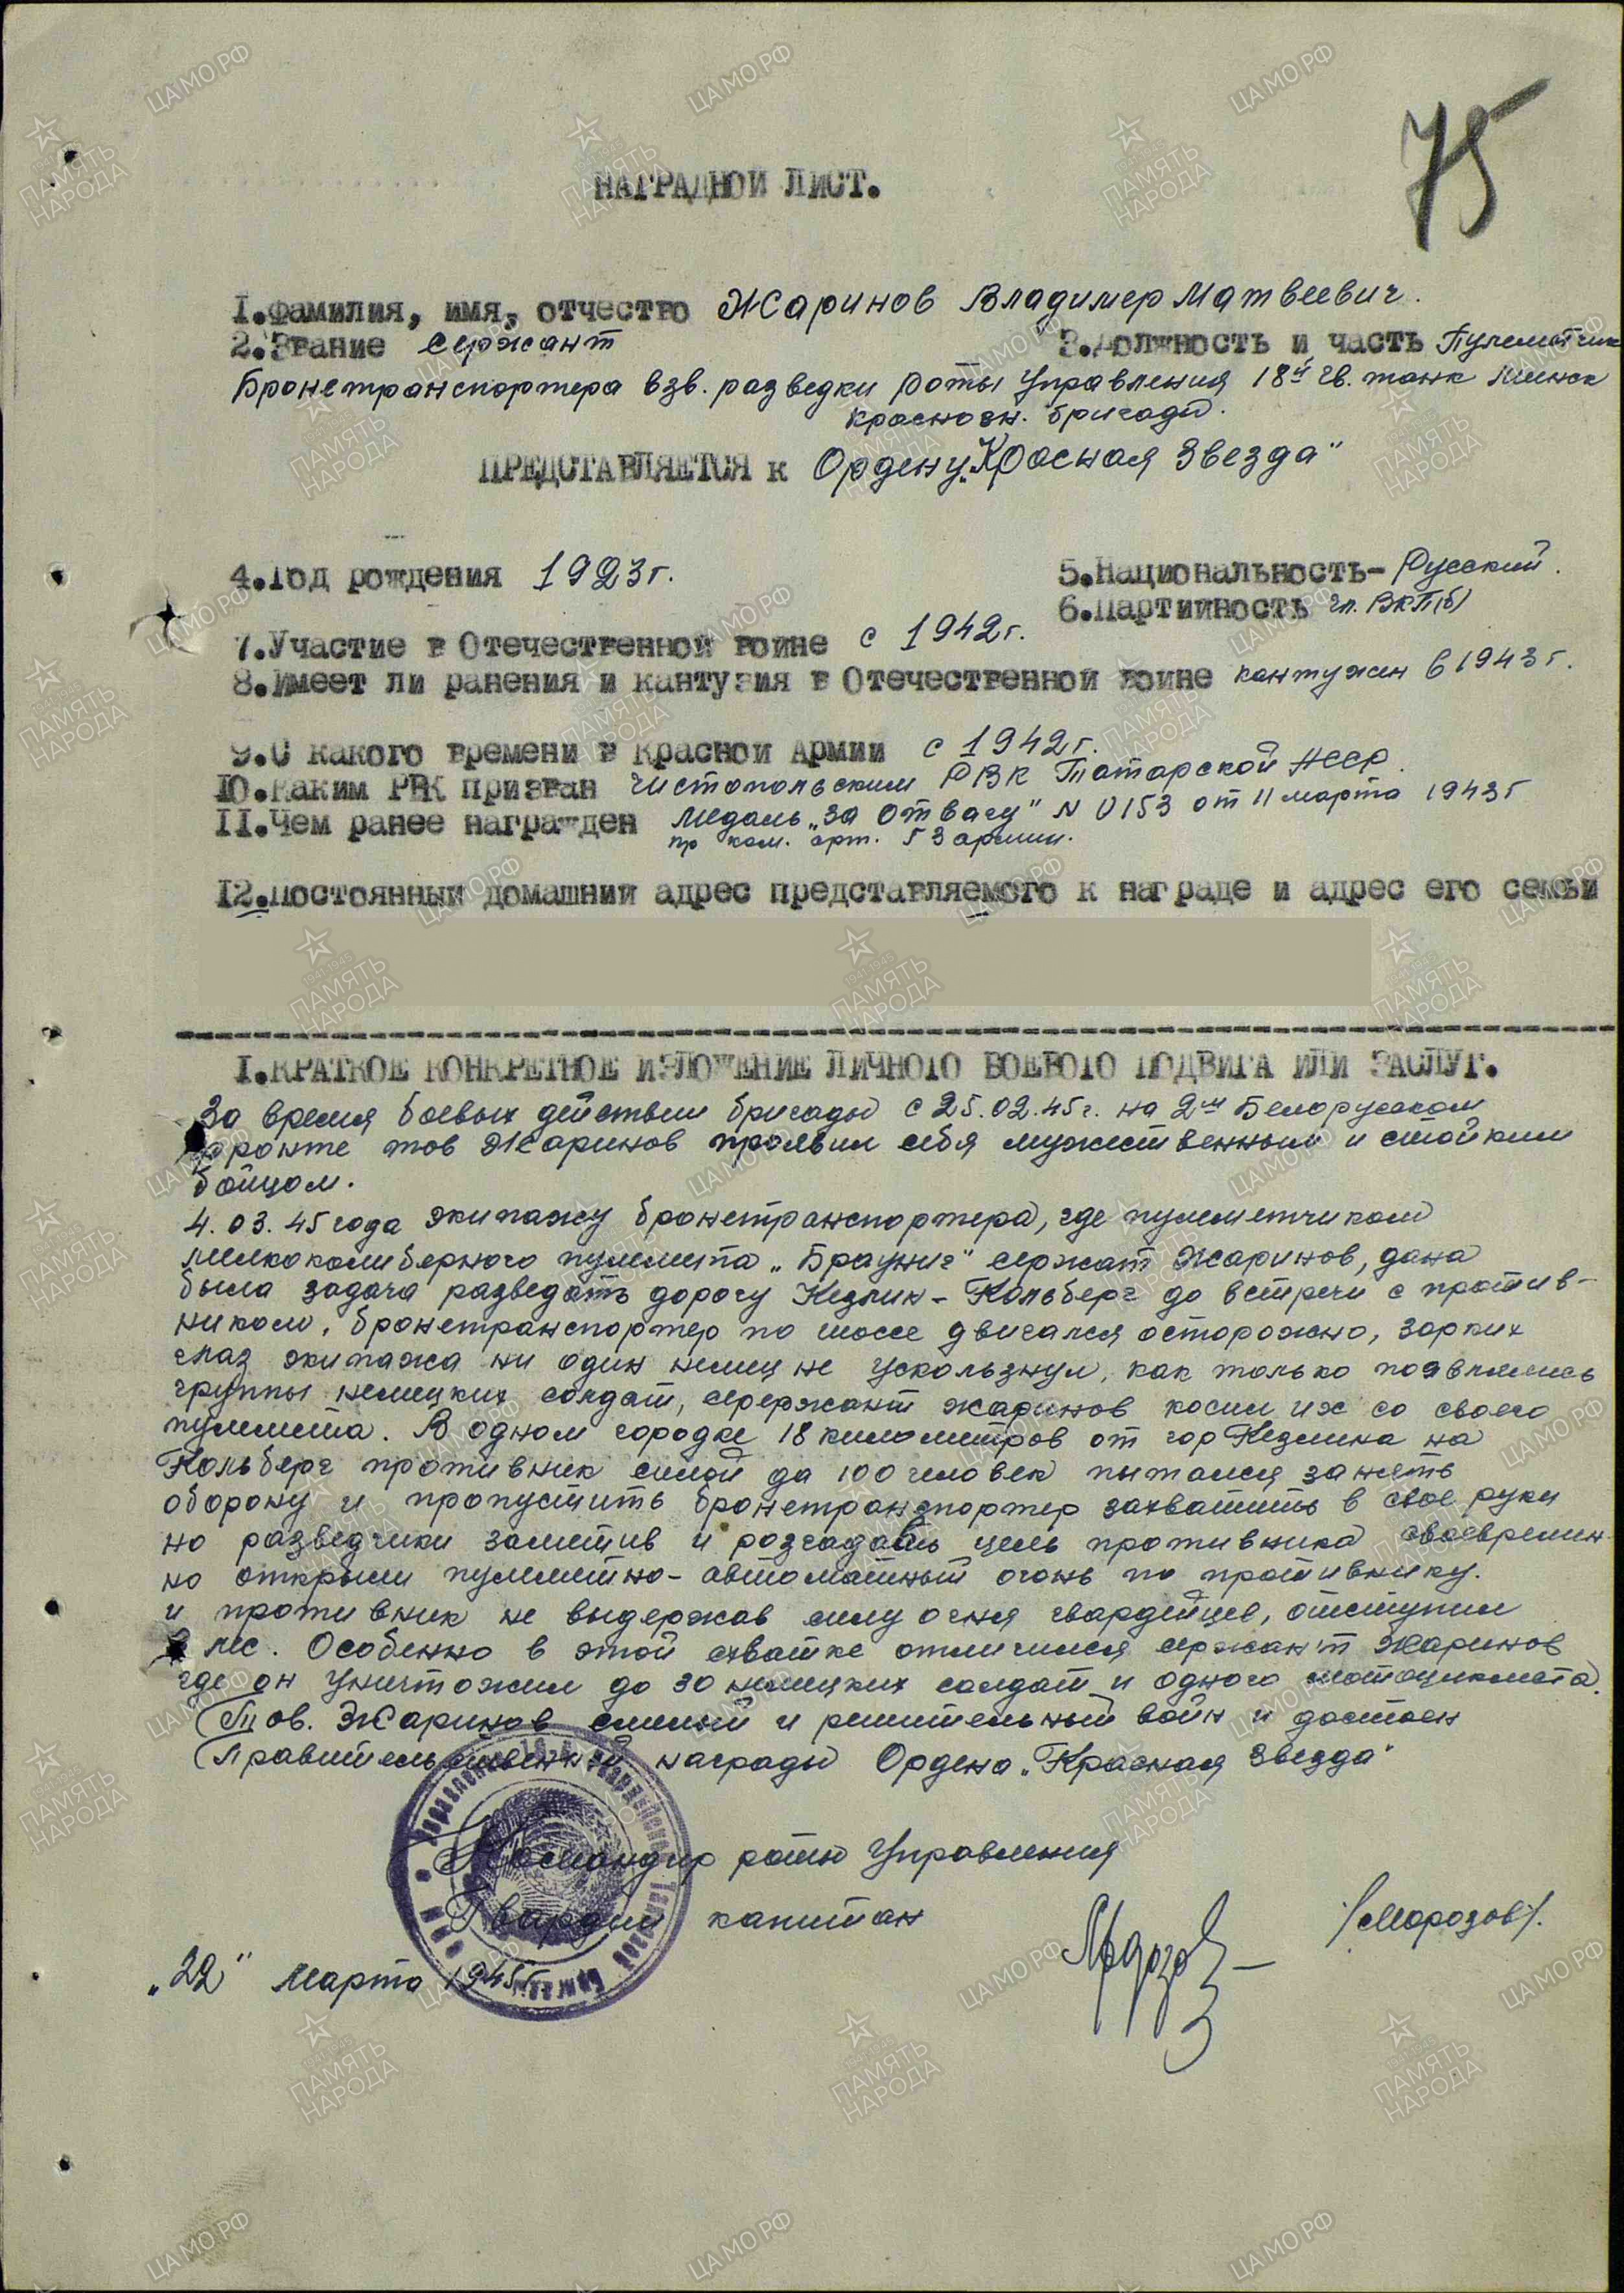 75
НАГРАДНОЙ ЛИСТ.
I.Фамилия, имя, отчество Жаринов Владимер Матвеевич.
2.Звание Сержант 3.Должность и часть Пулеметчик
Бронетранспортера взв. разведки Роты Управления 18й Гв. танк Минск
Красногн. бригады.
ПРЕДСТАВЛЯЕТСЯ к Ордену „Красная Звезда"
4.Год рождения 1923г. 5.Национальность- Русский.
6.Партийность чл. ВКП(б)
7.Участие в Отечественной войне с 1942г.
8.Имеет ли ранения и кантузия в Отечественной войне контужен в 1943г.
9.С какого времени в Красной Армии с 1942г.
10.Каким РВК призван Чистопольским РВК Татарской АССР.
II.Чем ранее награжден Медаль „За Отвагу" N 0153 от 11 марта 1943г
пр ком. арт. 53 армии.
12.Постоянный домашний адрес представляемого к награде и адрес его семьи
I.КРАТКОЕ КОНКРЕТНОЕ ИЗЛОЖЕНИЕ ЛИЧНОГО БОЕВОГО ПОДВИГА ИЛИ ЗАСЛУГ.
За время боевых действии бригады с 25.02.45г. на 2м Белорусском
фронте тов Жаринов проявил себя мужественным и стойким
бойцом.
4.03.45года экипажу бронетранспортера, где пулеметчиком
мелкокалиберного пулемета „Брауниг" сержат Жаринов, дана
была задача разведать дорогу Кезлин - Кольберг до встречи с против-
ником. бронетранспортер по шоссе двигался осторожно, зорких
глаз экипажа ни один немец не ускользнул, как только появлялись
группы немецких солдат, сережант Жаринов косил их со своего
пулемета. В одном городке 18 километров от гор Кезлина на
Кольберг противник силой да 100 человек пытался занять
оборону и пропустить бронетранспортер захватить в свое руки
но разведчики заметив и розгадав цель противника своевремен-
но открыли пулеметно-автоматный огонь по противнику.
и противник не выдержав силу огня гвардейцев, отступил
в лес. Особенно в этой схватке отличился сержант Жаринов
где он уничтожил до 30 немецких солдат и одного мотоциклиста.
Тов. Жаринов смелый и решительный войн и достоен
правительственной награды Ордена „Красная Звезда"
Командир роты Управления
Гвардии капитан /Морозов/.
„22" Марта 1945г
ПАМЯТЬ НАРОДА
ЦАМО.РФ